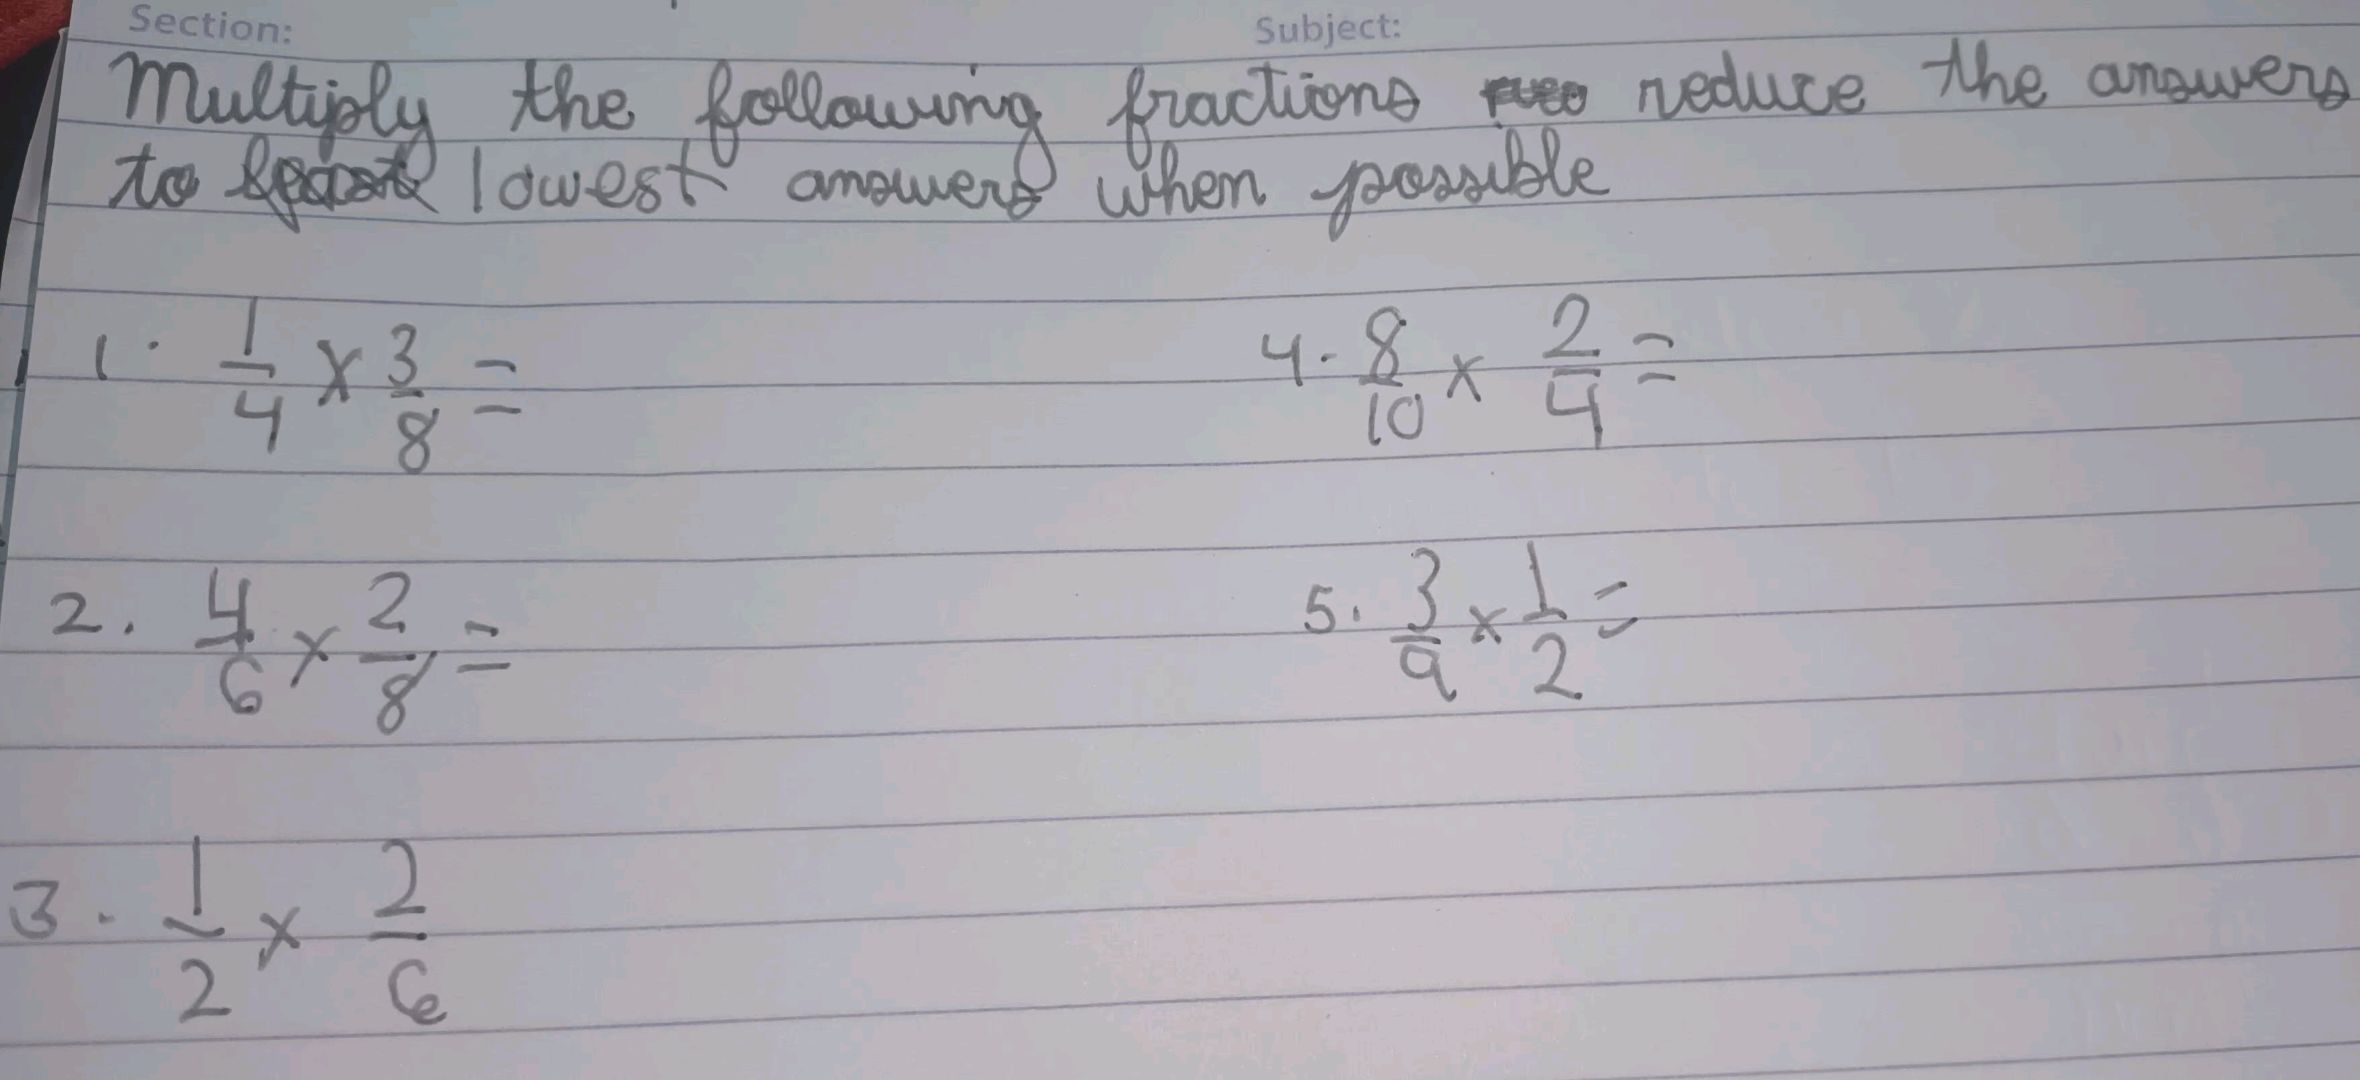 Section: Subject:
Multiply the following fractions reduce the answers
to lowest answers when possible
1. 1/4 x 3/8 =
4. 8/10 x 2/4 =
2. 4/6 x 2/8 =
5. 3/9 x 1/2 =
3. 1/2 x 2/6